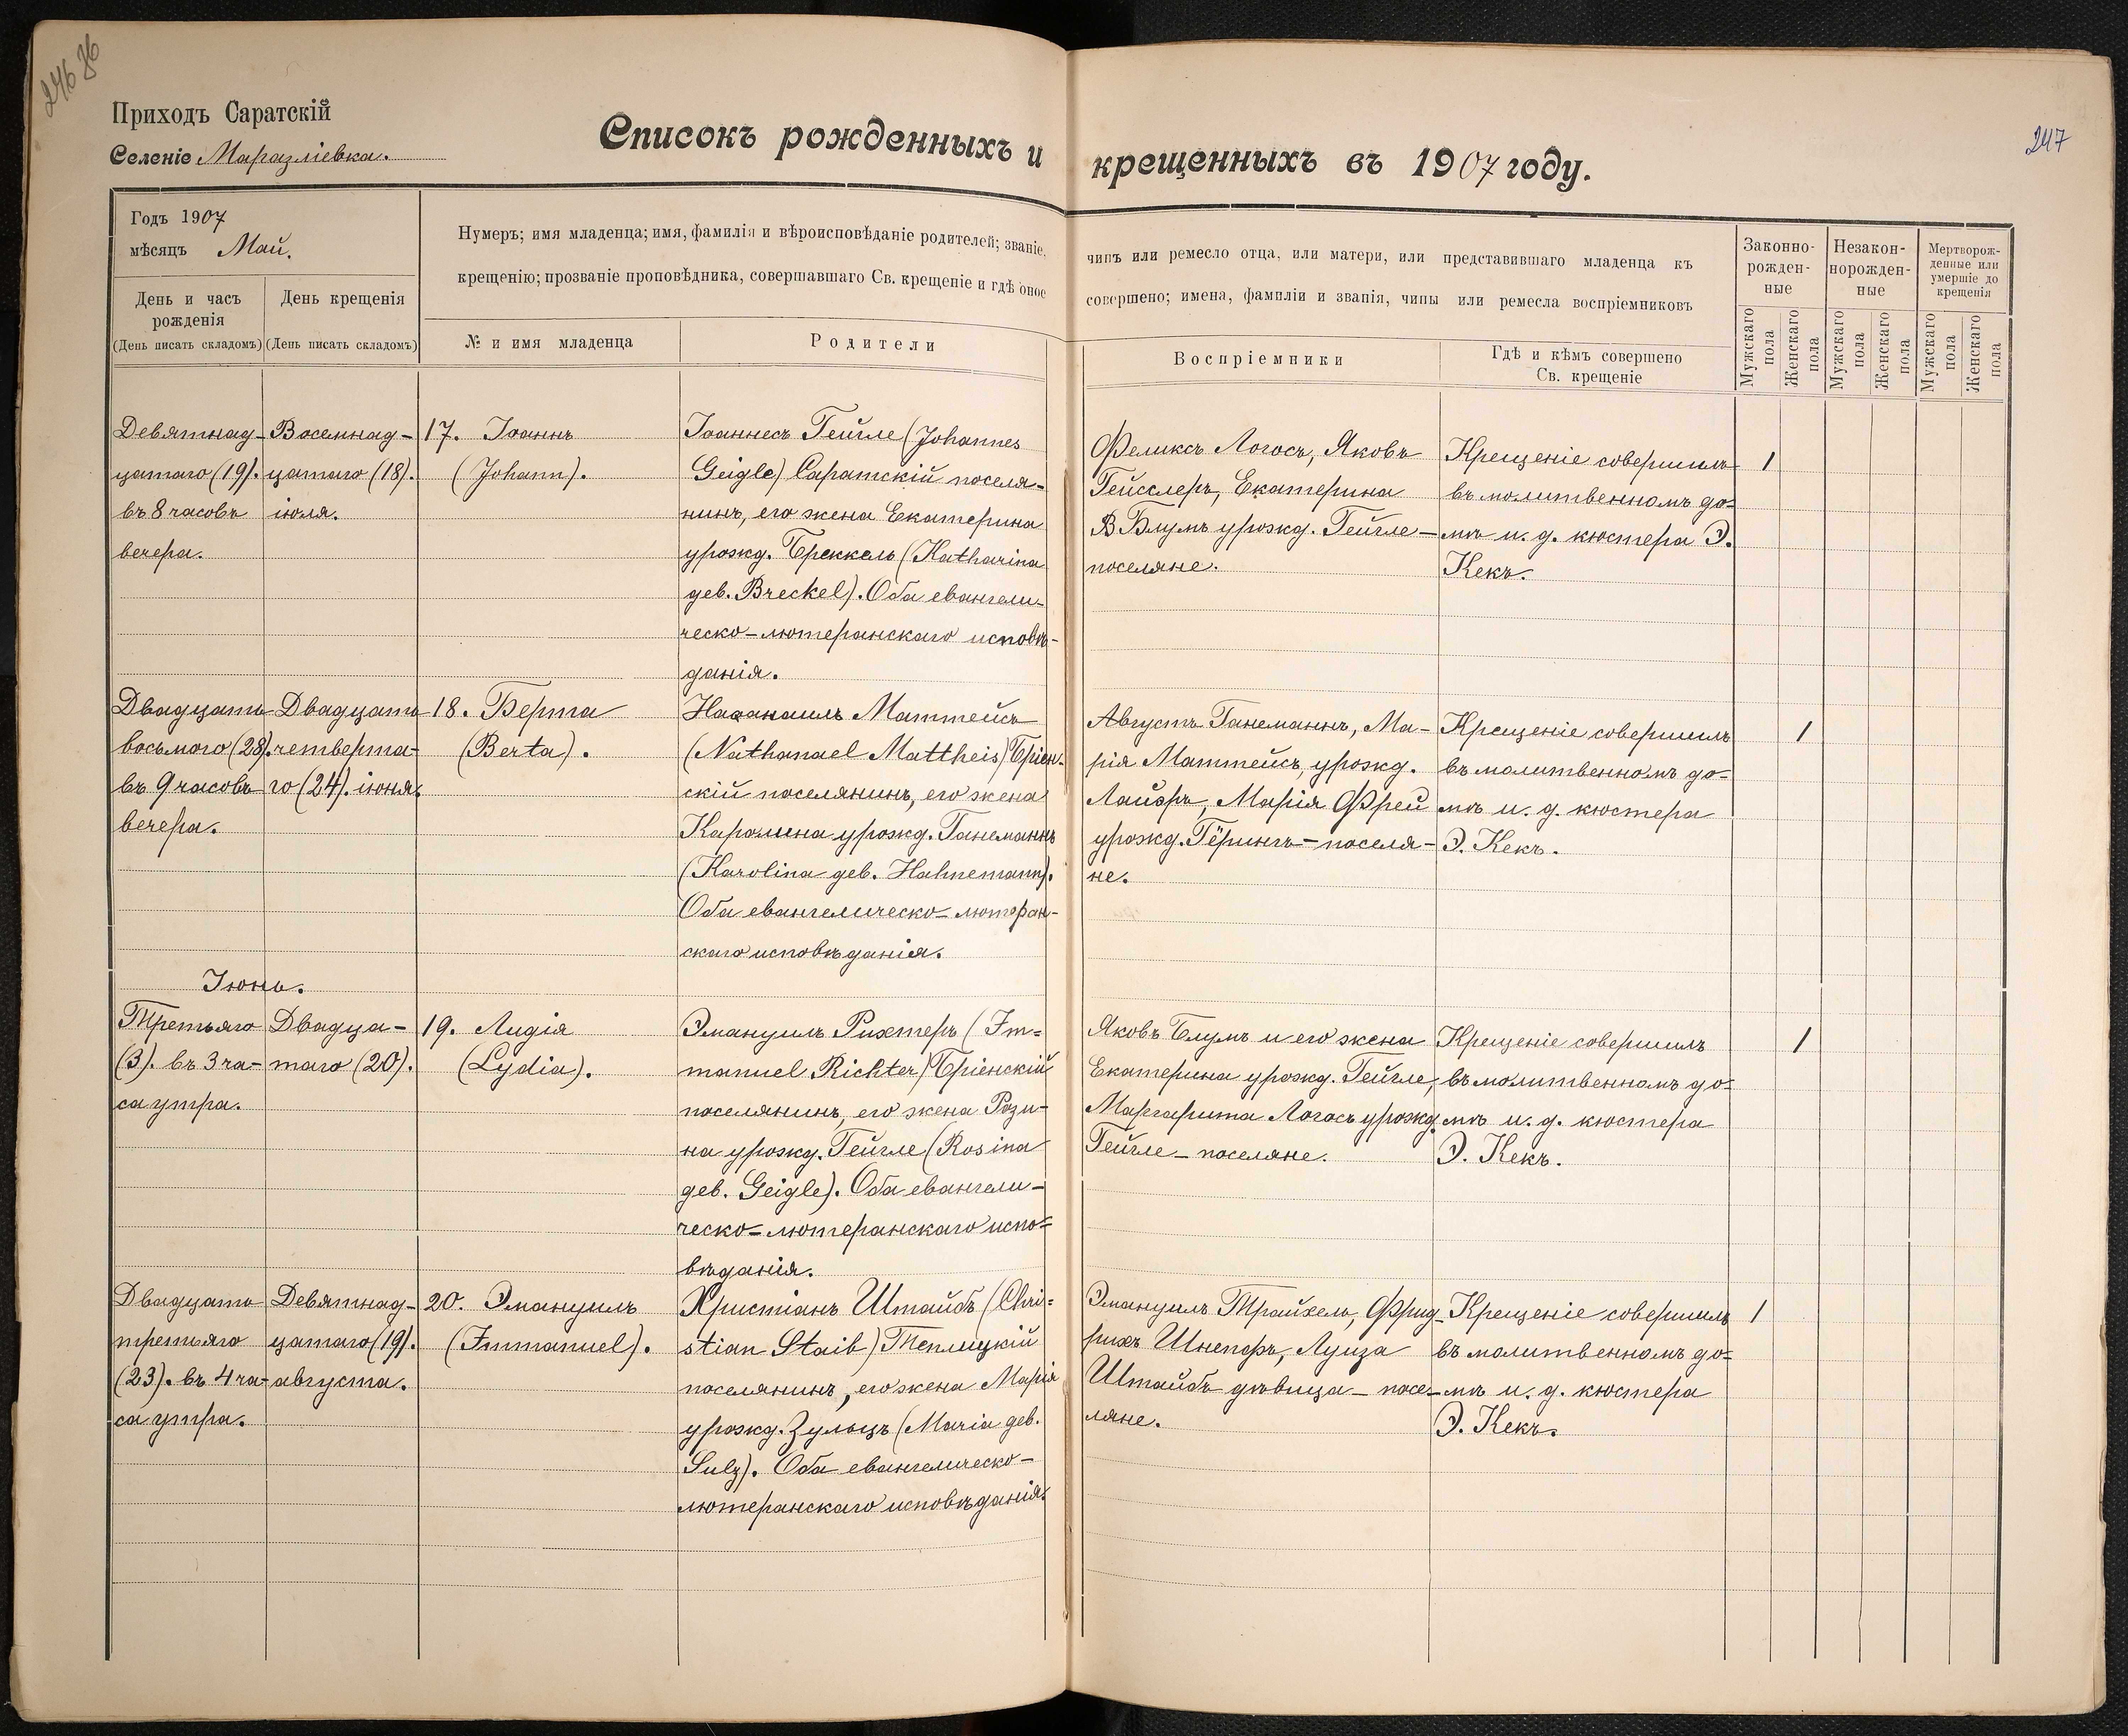 246 об
247
Приходъ Саратскій
Селеніе Маразліевка.
Списокъ рожденныхъ и крещенныхъ въ 1907 году.
Годъ 1907
мѣсяцъ Май.
День и часъ рожденія
(День писать складомъ)
День крещенія
(День писать складомъ)
Нумеръ; имя младенца; имя, фамилія и вѣроисповѣданіе родителей; званіе, чинъ или ремесло отца, или матери, или представившаго младенца къ
крещенію; прозваніе проповѣдника, совершавшаго Св. крещеніе и гдѣ оное совершено; имена, фамиліи и званія, чины или ремесла воспріемниковъ
№ и имя младенца
Родители
Воспріемники
Гдѣ и кѣмъ совершено
Св. крещеніе
Законно-
рожден-
ные
Незакон-
норожден-
ные
Мертворож-
денные или
умершіе до
крещенія
Мужскаго пола
Женскаго пола
Мужскаго пола
Женскаго пола
Мужскаго пола
Женскаго пола
Девятнад-
цатаго (19).
въ 8 часовъ
вечера.
Восемнад-
цатаго (18).
іюля.
17. Іоаннъ
(Johann).
Іоаннесъ Гейгле (Johannes
Geigle) Саратскій поселя-
нинъ, его жена Екатерина
урожд. Бреккель (Katharina
geb. Breckel). Оба евангели-
ческо-лютеранскаго исповѣ-
данія.
Феликсъ Логосъ, Яковъ
Гейсслеръ, Екатерина
В Блумъ урожд. Гейгле —
поселяне.
Крещеніе совершилъ
въ молитвенномъ до-
мѣ и. д. кюстера Э.
Кекъ.
1
Двадцать
восьмого (28).
въ 9 часовъ
вечера.
Двадцать
четверта-
го (24). іюня.
18. Берта
(Berta).
Наѳанаилъ Маттейсъ
(Nathanael Mattheis) Бріен-
скій поселянинъ, его жена
Каролина урожд. Ганеманнъ
(Karolina geb. Hahnemann).
Оба евангелическо-лютеран-
скаго исповѣданія.
Августъ Ганеманнъ, Ма-
рія Маттейсъ, урожд.
Лайэръ, Марія Фрей
урожд. Гёрингъ — поселя-
не.
Крещеніе совершилъ
въ молитвенномъ до-
мѣ и. д. кюстера
Э. Кекъ.
1
Іюнь.
Третьяго
(3). въ 3 ча-
са утра.
Двадца-
таго (20).
19. Лидія
(Lydia).
Эмануилъ Рихтеръ (Im-
manuel Richter) Бріенскій
поселянинъ, его жена Рози-
на урожд. Гейгле (Rosina
geb. Geigle). Оба евангели-
ческо-лютеранскаго испо-
вѣданія.
Яковъ Блумъ и его жена
Екатерина урожд. Гейгле,
Маргарита Логосъ урожд.
Гейгле — поселяне.
Крещеніе совершилъ
въ молитвенномъ до-
мѣ и. д. кюстера
Э. Кекъ.
1
Двадцать
третьяго
(23). въ 4 ча-
са утра.
Девятнад-
цатаго (19).
августа.
20. Эмануилъ
(Immanuel).
Христіанъ Штайбъ (Chri-
stian Staib) Теплицкій
поселянинъ, его жена Марія
урожд. Зульцъ (Maria geb.
Sulz). Оба евангелическо-
лютеранскаго исповѣданія.
Эмануилъ Трайхель, Фрид-
рихъ Шнепфъ, Луиза
Штайбъ дѣвица — посе-
ляне.
Крещеніе совершилъ
въ молитвенномъ до-
мѣ и. д. кюстера
Э. Кекъ.
1